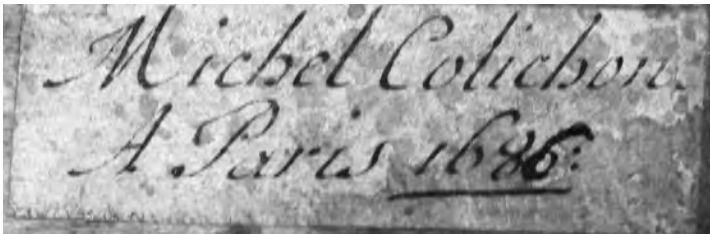 Michel Colichon.
A Paris 1686: